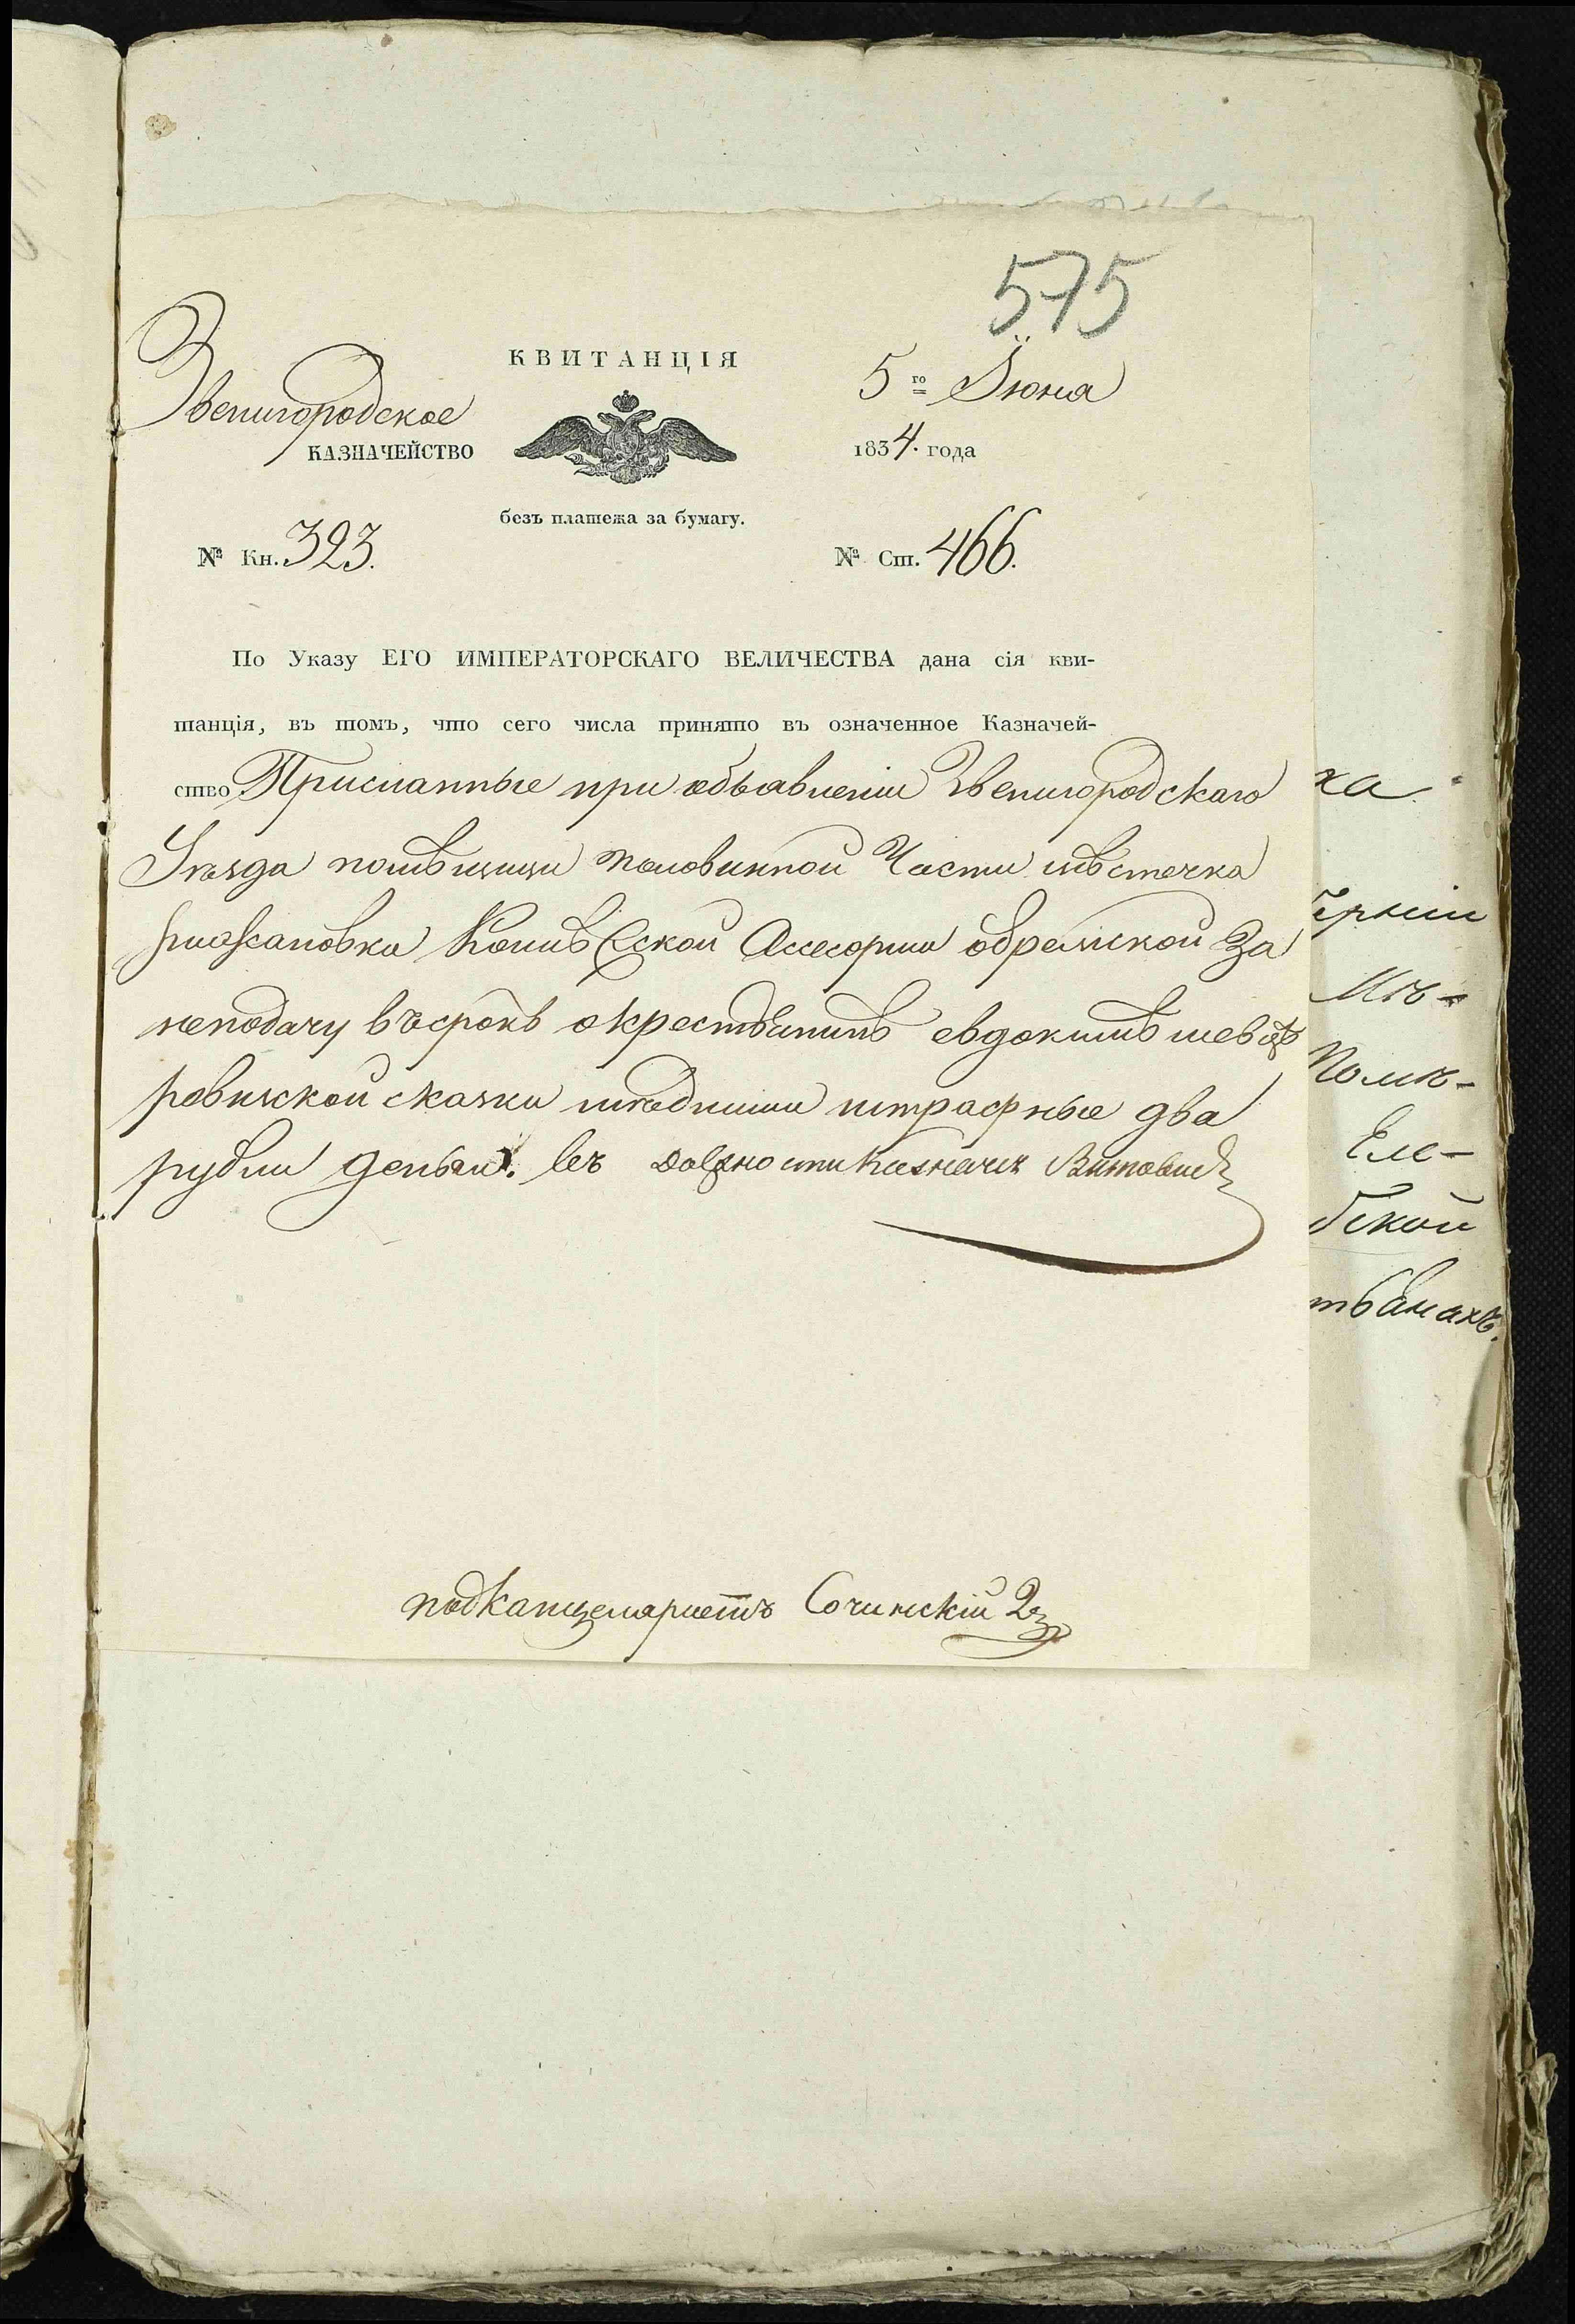 575
КВИТАНЦІЯ
Звенигородское
КАЗНАЧЕЙСТВО
5го Іюня
1834. года
безъ платежа за бумагу.
№ Кн. 323.
№ Ст. 466.
По Указу ЕГО ИМПЕРАТОРСКАГО ВЕЛИЧЕСТВА дана сія кви-
танція, въ томъ, что сего числа принято въ означенное Казначей-
ство Присланные при объявленіи Звенигородскаго
Уѣзда помѣщицы половинной Части мѣстечка
Колѣжской Ассесорши За
неподачу въ срокъ о крестьянинѣ евдокимѣ шевъ
ревизской сказки мѣдными штрафные два
рубли деньги. въ должности Казначея Витовичъ
подканцеляристъ Сочинскій 2й
ха.
берніи
Мѣ-
Помѣ-
Еле-
ской
тьянахъ.